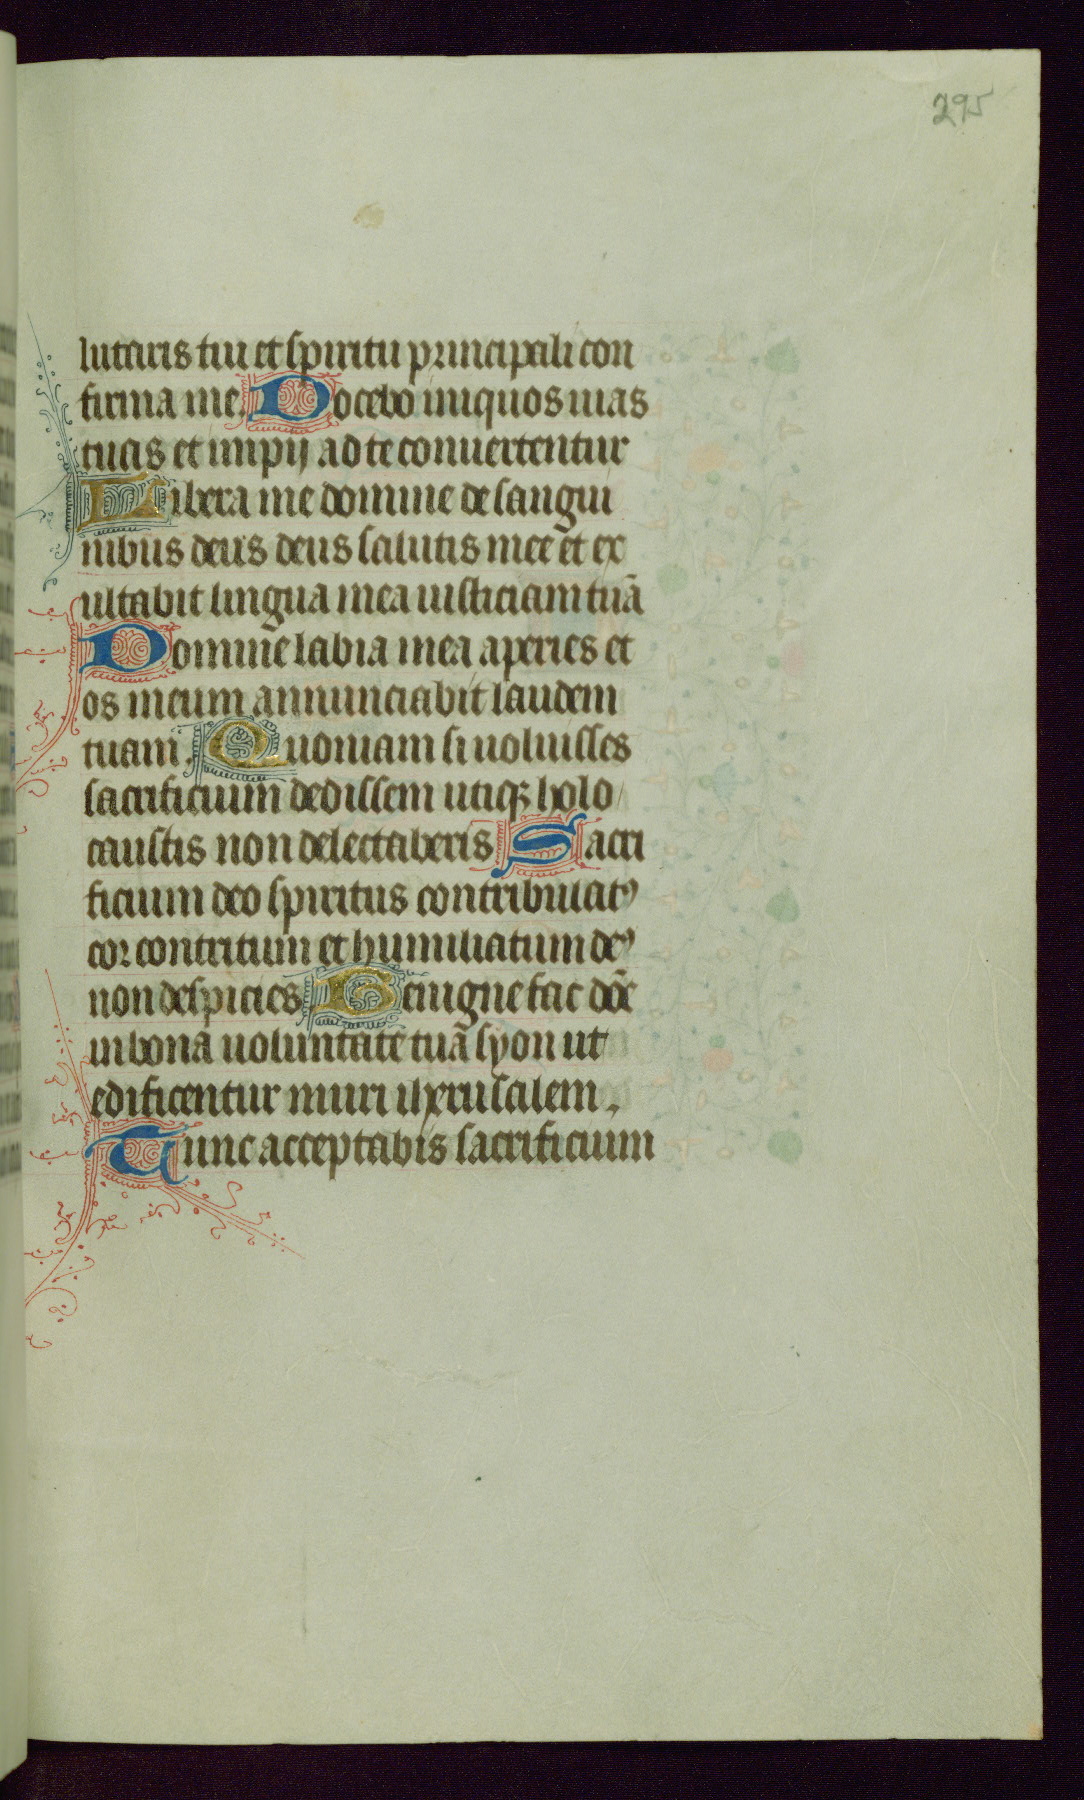 295
lutaris tui et spiritu principali con
firma me. Docebo iniquos uias
tuas et impij ad te conuertentur
Libera me domine de sangui
nibus deus deus salutis mee et ex
ultabit lingua mea iusticiam tuā
Domine labia mea aperies et
os meum annunciabit laudem
tuam. Quoniam si uoluisses
sacrificium dedissem utiqꝫ holo
caustis non delectaberis Sacri
ficium deo spiritus contribulatꝰ
cor contritum et humiliatum deꝰ
non despicies Benigne fac dn̄e
in bona uoluntate tuā syon ut
edificentur muri iherusalem.
Tunc acceptabis sacrificium